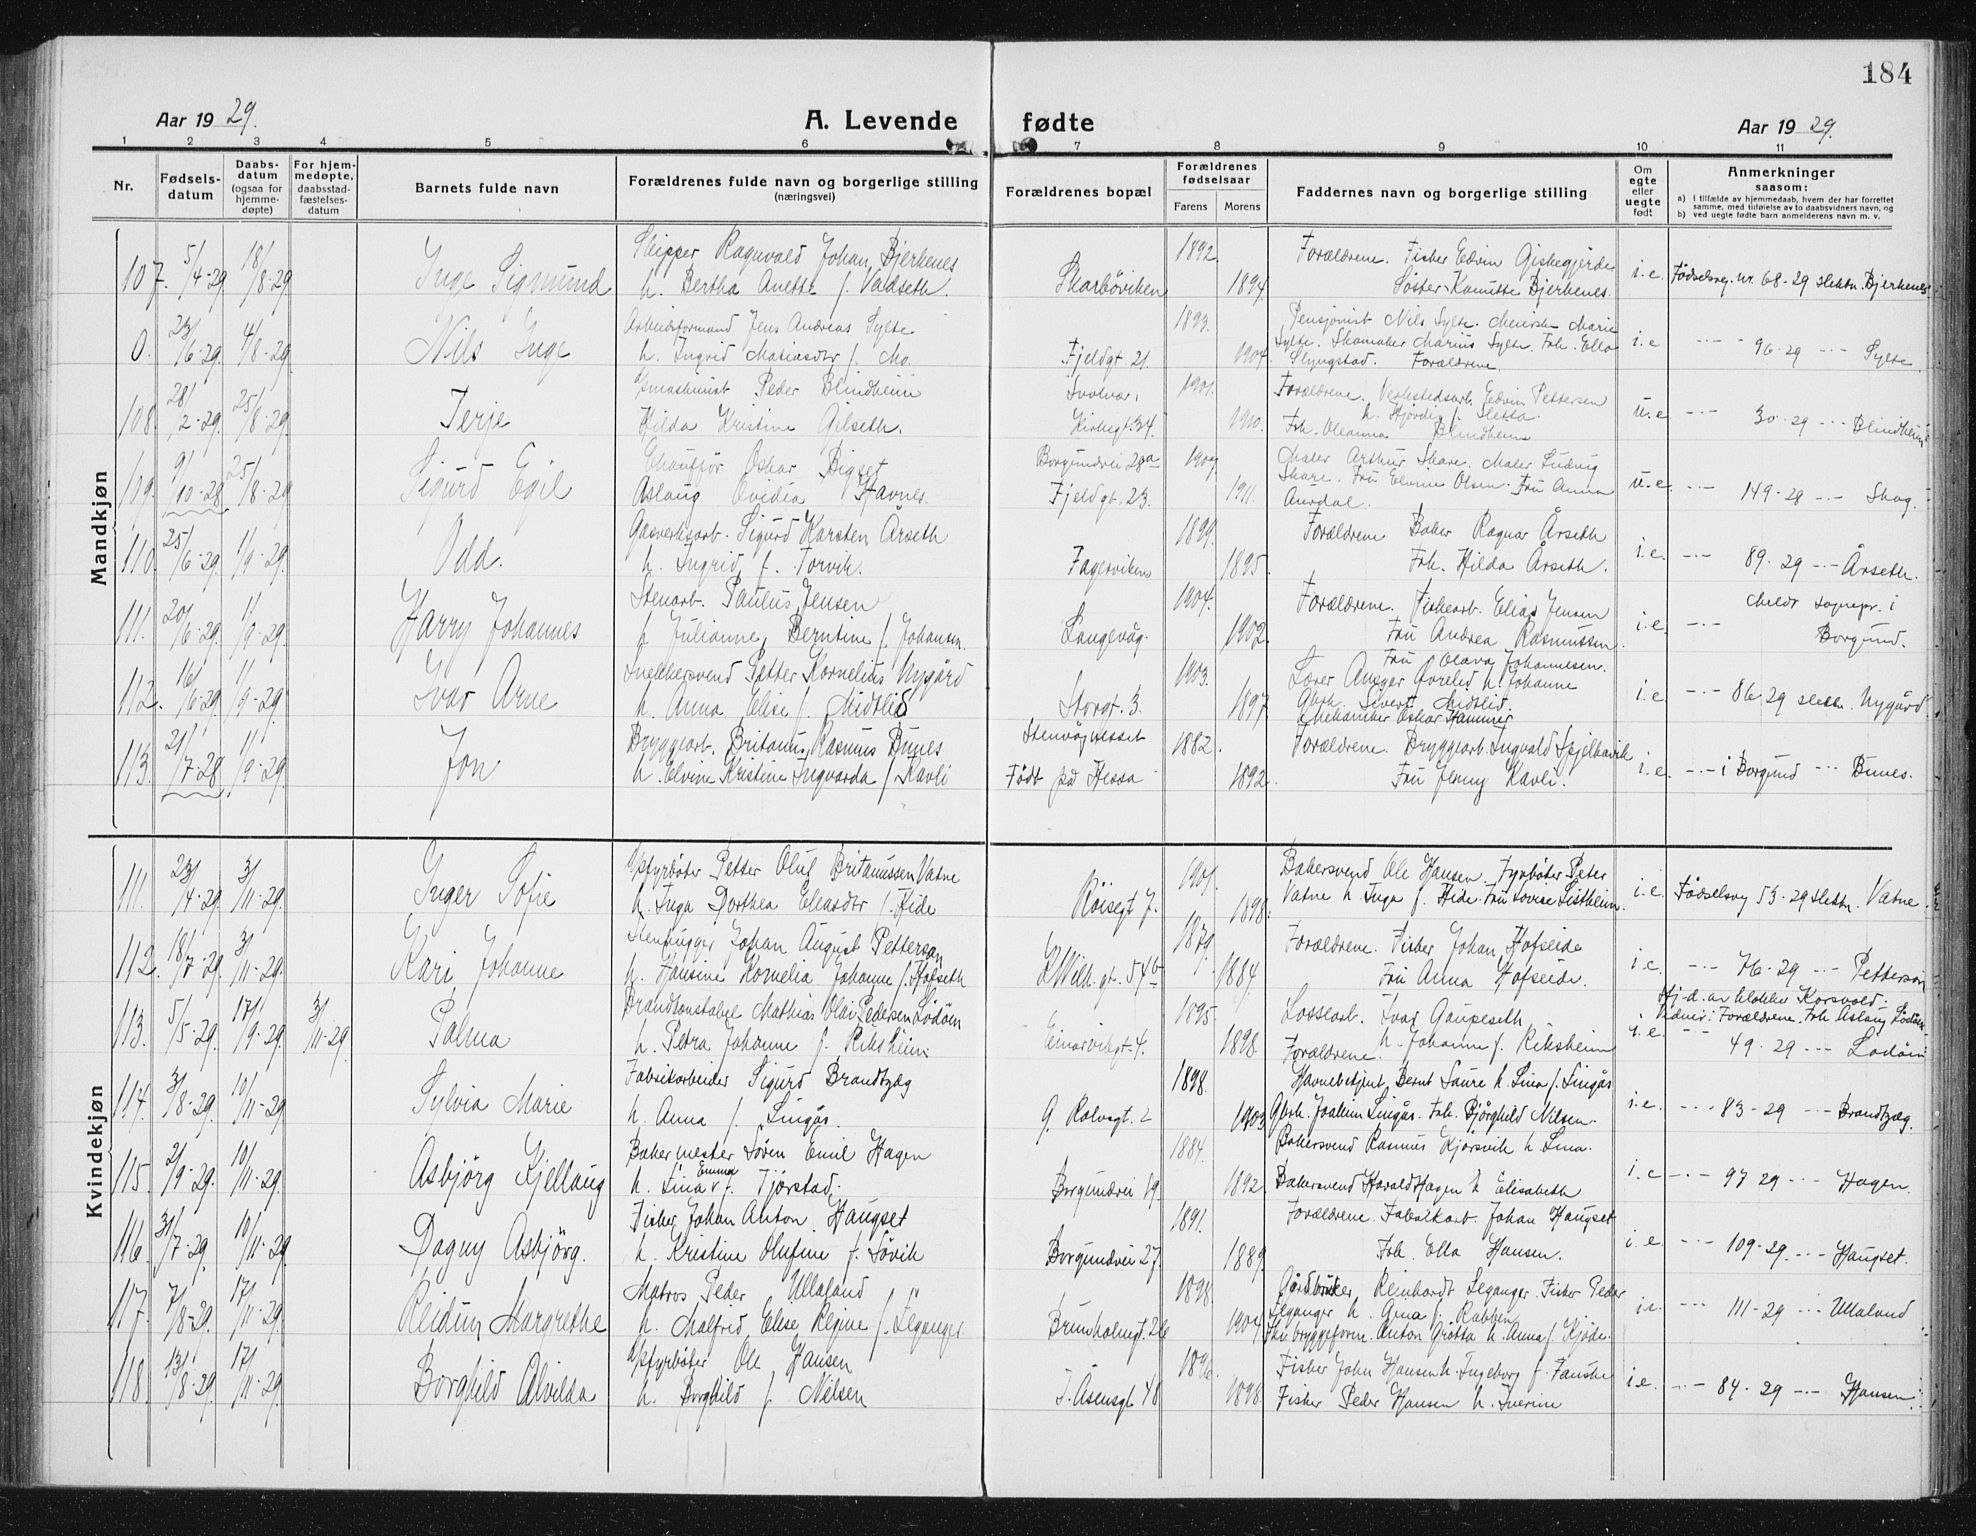 184
Aar 19 29.
A. Levende fødte
Aar 19 29.
1 2 3 4 5 6 7 8 9 10 11
Nr.
Fødsels-
datum
Daabs-
datum
(ogsaa for
hjemme-
døpte)
For hjem-
medøpte,
daabsstad-
fæstelses-
datum
Barnets fulde navn
Forældrenes fulde navn og borgerlige stilling
(næringsvei)
Forældrenes bopæl
Forældrenes
fødselsaar
Farens Morens
Faddernes navn og borgerlige stilling
Om
egte
eller
uegte
født
Anmerkninger
saasom:
a) I tilfælde av hjemmedaab, hvem der har forrettet
samme, med tilføielse av to daabsvidners navn, og
b) ved uegte fødte barn anmelderens navn m. v.
Mandkjøn
107. 5/4-29 18/8-29 Inge Sigmund
Skipper Ragnvald Johan Bjerkenes
h. Bertha Anette f. Valdseth.
Skarbøviken 1892. 1894.
Forældrene. Fisker Edvin Giskegjerde
Søster Kanutte Bjerkenes.
i.e. Fødselsreg. nr. 68-29 Slektn. Bjerkenes
0. 23/6-29 4/8-29 Nils Inge
Arbeidsformand Jens Andreas Sylte
h. Ingrid Matiasdtr f. Mo.
Fjeldgt 21. 1893. 1904.
Pensjonist Nils Sylte. Marie
Sylte. Skomaker Marius Sylte. Frk. Ella
Slyngstad. Forældrene.
i.e 96-29 Sylte
108. 28/2-29. 25/8-29 Terje
Peder Blindheim
Hilda Kristine Gilseth.
Svolvær, Kirkegt. 34. 1901. 1910.
Forældrene. Verkstedsarb. Edvin Pettersen
h. Hjørdis f. Sletta.
Frk. Oleanna Blindheim
u.e 30-29 Blindheim
109. 9/10-28 25/8-29 Sigurd Egil
Chauffør Oskar Bigset
Aslaug Ovidia Havnes.
Borgundvei 28a Fjeldgt. 23. 1907. 1911.
Maler Arthur Skare. Maler Ludvig
Skare. Fru Elvine Olsen. Fru Anna
Aurdal.
u.e. 149-28 Skog.
110. 25/6-29. 1/9-29. Odd.
Gasverksarb. Sigurd Karsten Årseth
h. Ingrid f. Torvik.
Fagerviken 1899. 1895.
Forældrene Baker Ragnar Årseth
Frk. Hilda Årseth.
i.e. 89-29 Årseth.
111. 20/6-29. 1/9-29. Harry Johannes
Stenarb. Paulus Jensen
h Julianne Berntine f. Johansen
Langevåg. 1904. 1902.
Forældrene. Fiskearb. Elias Jensen
Fru Andrea Rasmussen
Fru Olava Johannesen.
i.e. Meldt sognepr. i
Borgund.
112. 16/6-29. 1/9-29. Ivar Arne
Snekkersvend Petter Kornelius Nygård
h. Anna Elise f. Midtlid
Storgt. 3. 1903. 1897.
Lærer Ansgar Øvrelid h. Johanne
Gbrk. Sivert Midtlid.
Mekaniker Oskar Hammer
i.e 86-29 slektn. Nygård
113. 21/7-28 1/9-29. Jon
Bryggearb. Britanus Rasmus Bunes
h. Elvine Kristine Ingvarda f. Kavli
Stenvågneset
Født på Hessa 1882. 1892.
Forældrene. Bryggearb. Ingvald Spjelkavik
Fru Jenny Kavli.
i.e. i Borgund Bunes.
Kvindekjøn
111. 23/4-29. 3/11-29. Inger Sofie
Fyrbøter Petter Oluf Britanussen Vatne
h. Inga Dorthea Eliasdtr f. Hide
Røisegt 7. 1901. 1898.
Bakersvend Ole Hansen. Fyrbøter Peter
Vatne h. Inga f. Hide. Fru Lovise Listheim.
i.e. Fødselsreg 53-29 slektn. Vatne.
112. 18/7-29. 3/11-29. Kari Johanne
Stenhugger Johan August Petterson
h. Hansine Kornelia Johanne f. Hofseth
K Wilh. gt. 54b 1879. 1884.
Forældrene. Fisker Johan Hofseide
Fru Anna Hofseide.
i.e. 76-29 Petterson
113. 5/5-29. 17/9-29. 3/11-29. Palma
Brandkonstabel Mathias Olai Pedersen Lødøen
h. Petra Johanne f. Riksheim
Einarvikgt. 4. 1895. 1898.
Lossearb. Ivar Gaupeseth
h. Johanne f. Riksheim
Forældrene.
Hj.d. av klokker Korsvold.
Vidner: Forældrene. Frk Aslaug Lødøen
i.e. 49-29 Lødøen
114. 3/8-29. 10/11-29. Sylvia Marie
Fabrikarbeider Sigurd Brandtzæg
h. Anna f. Lingås.
G. Rolvsgt. 2 1898. 1903
Havnebetjent Bernt Saure h. Lina f. Lingås
Gbrk. Joakim Lingås. Frk. Bjørghild Nilsen.
i.e. 83-29 Brandtzæg.
115. 2/9-29. 10/11-29. Asbjørg Kjellaug
Bakermester Søren Emil Hagen
h. Lina Emma f. Tjørstad.
Borgundvei 19. 1884. 1892.
Bakersvend Rasmus Kjørsvik h. Lina.
Bakersvend Harald Hagen h. Elisabeth
i.e 97 29 Hagen.
116. 31/7-29. 10/11-29. Dagny Asbjørg.
Fisker Johan Anton Haugset
h. Kristine Olufine f. Søvik
Borgundvei 27. 1891. 1889.
Forældrene. Fabrikarb. Johan Haugset
Frk. Ella Hansen.
i.e. 109-29 Haugset.
117. 7/8-29. 17/11-29. Reidun Margrethe
Matros Peder Ullaland
h. Malfrid Elise Regine f. Leganger
Brunholmgt. 26 1898. 1904
Gårdbruker Reinhardt Leganger. Fisker Peder
Leganger h. Anna f. Rabben
Fhv. bryggeform. Anton Grøtta h. Anna f. Kjøde.
i.e. 111-29 Ullaland
118. 13/8-29. 17/11-29. Borghild Alvilda
Fyrbøter Ole Hansen
h. Borghild f. Nilsen
I. Åsensgt 48 1896. 1898.
Fisker John Hansen h. Ingeborg f. Fauske
Fisker Peder Hansen h. Sverine
i.e. 84-29 Hansen